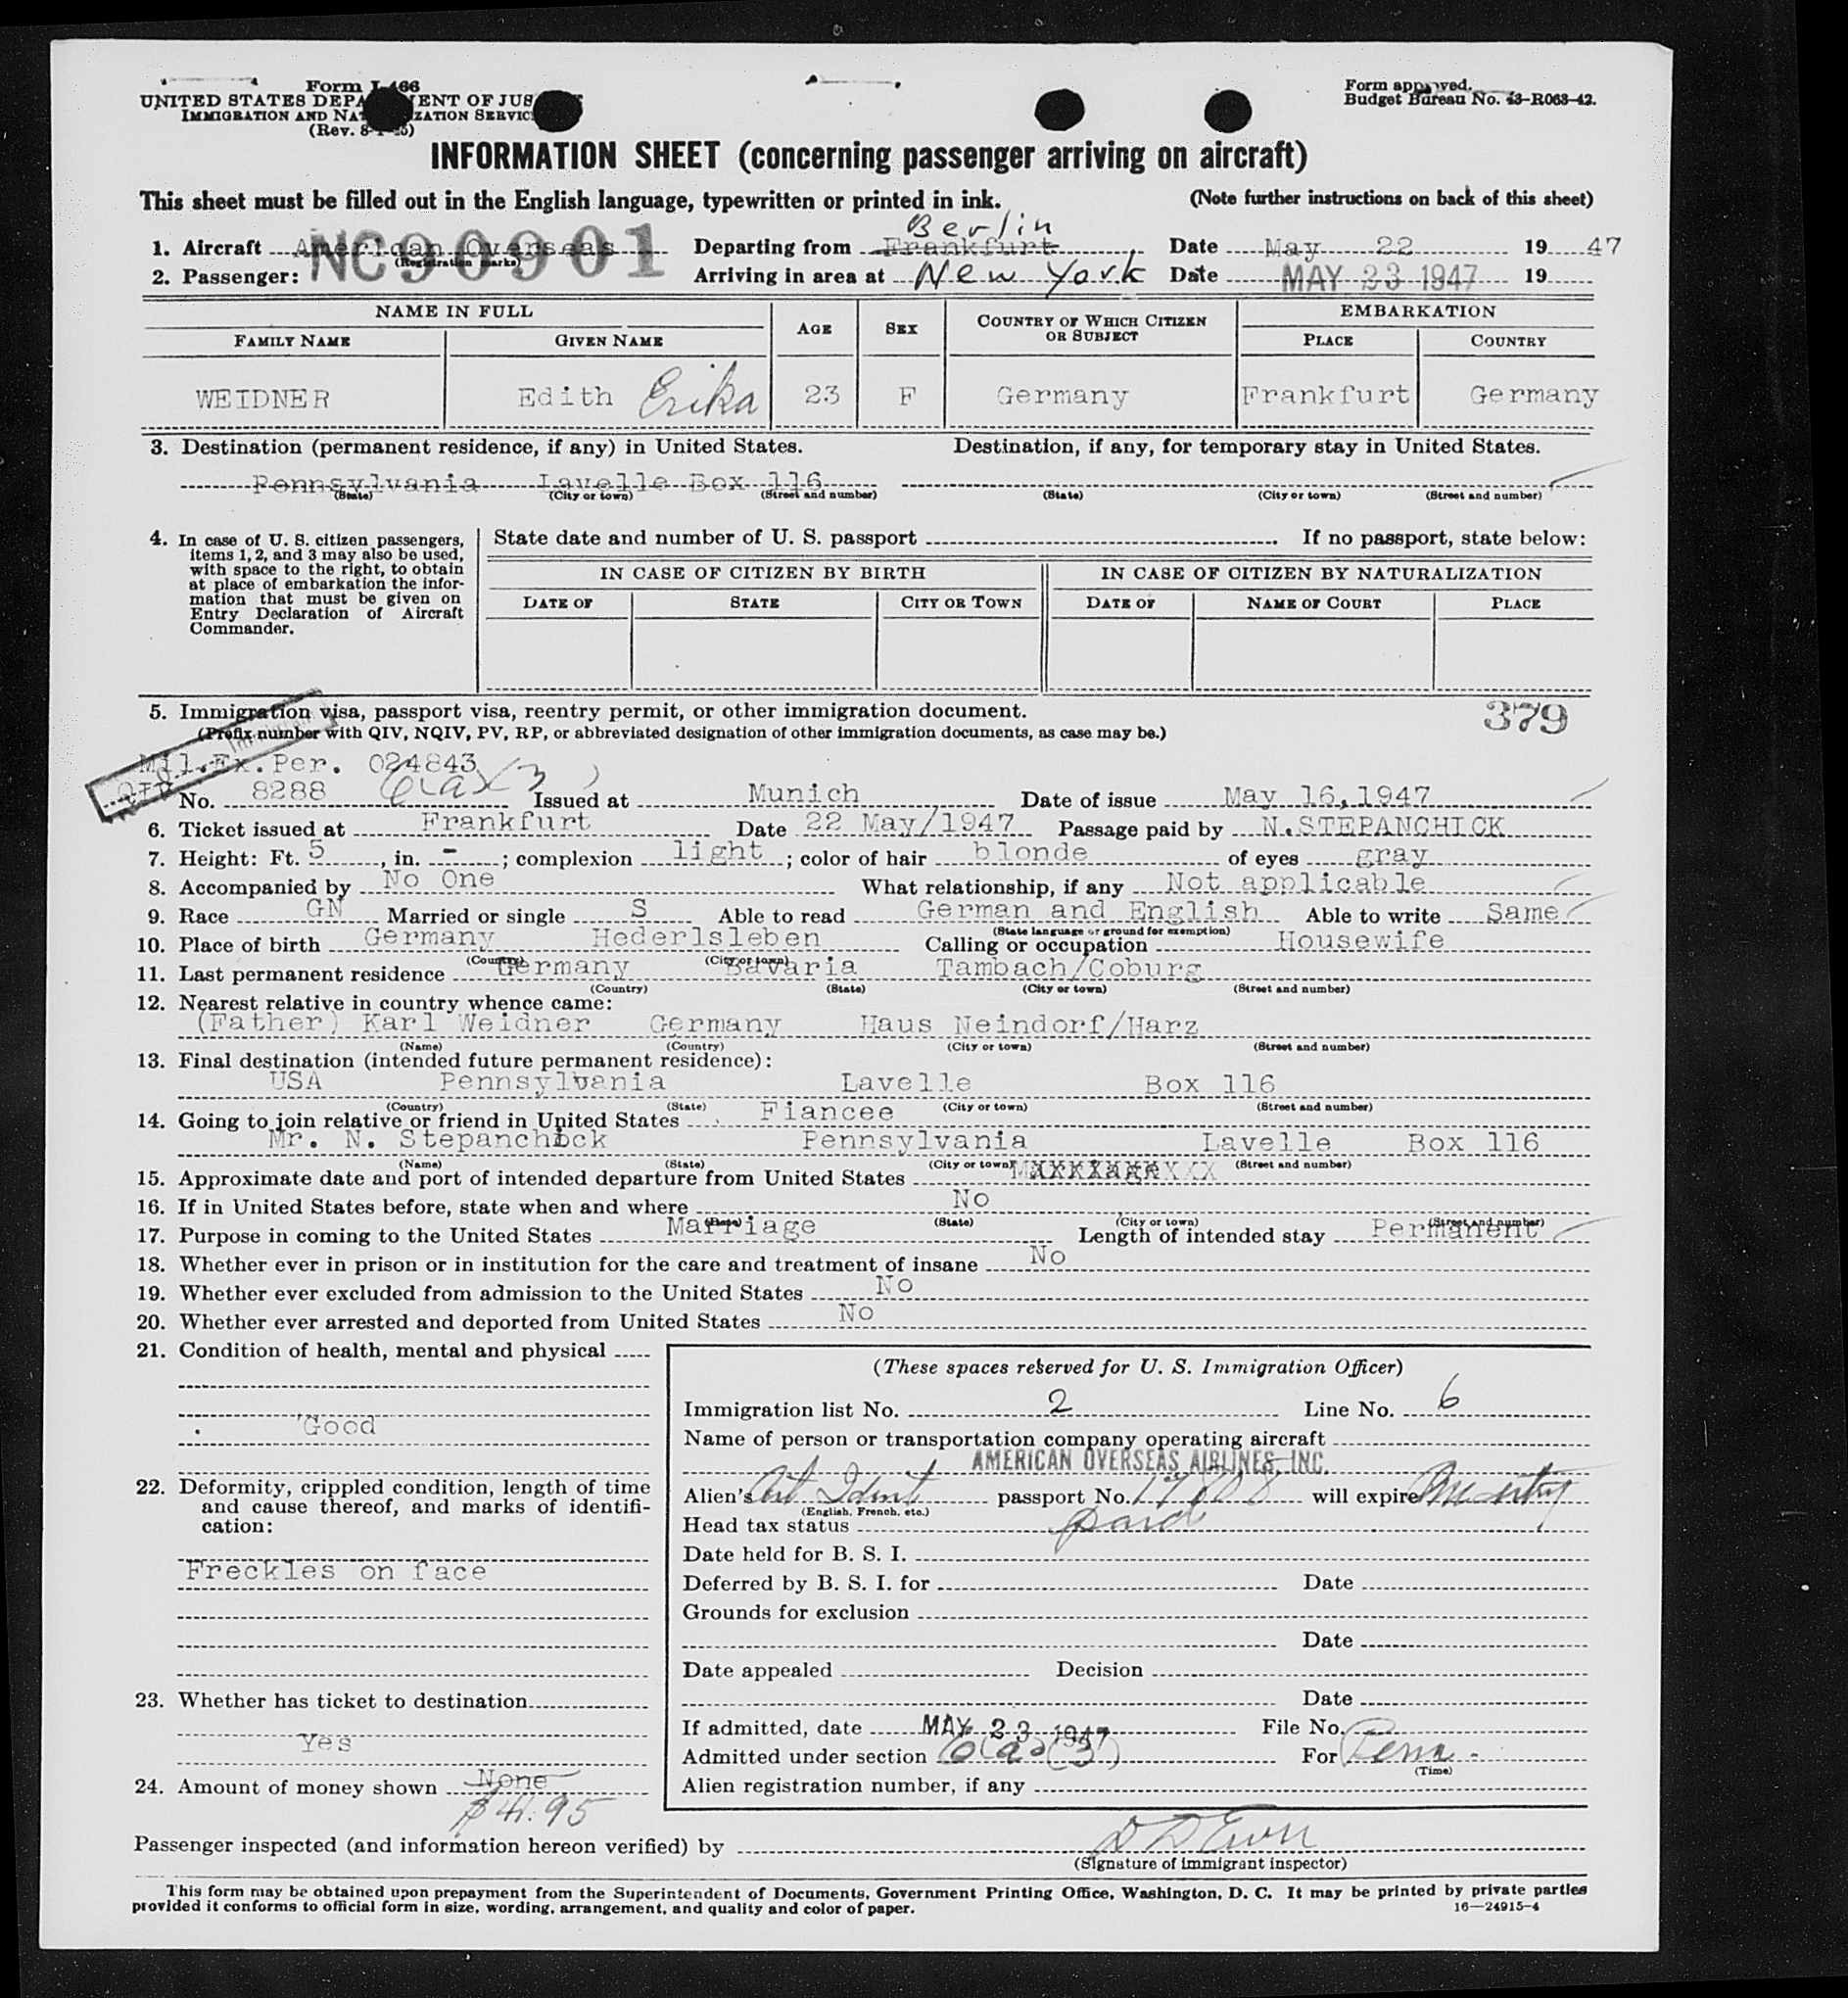 Form I-466
UNITED STATES DEPARTMENT OF JUSTICE
IMMIGRATION AND NATURALIZATION SERVICE
(Rev. 8-1-45)
Form approved.
Budget Bureau No. 43-R063-42.
INFORMATION SHEET (concerning passenger arriving on aircraft)
This sheet must be filled out in the English language, typewritten or printed in ink. (Note further instructions on back of this sheet)
Berlin
1. Aircraft American Overseas NC90901 Departing from Frankfurt Date May 22 1947
(Registration marks)
2. Passenger: Arriving in area at New York Date MAY 23 1947 19
NAME IN FULL AGE SEX COUNTRY OF WHICH CITIZEN OR SUBJECT EMBARKATION
FAMILY NAME GIVEN NAME PLACE COUNTRY
WEIDNER Edith Erika 23 F Germany Frankfurt Germany
3. Destination (permanent residence, if any) in United States. Destination, if any, for temporary stay in United States.
Pennsylvania Lavelle Box 116
(State) (City or town) (Street and number) (State) (City or town) (Street and number)
4. In case of U. S. citizen passengers, items 1, 2, and 3 may also be used, with space to the right, to obtain at place of embarkation the information that must be given on Entry Declaration of Aircraft Commander.
State date and number of U. S. passport If no passport, state below:
IN CASE OF CITIZEN BY BIRTH IN CASE OF CITIZEN BY NATURALIZATION
DATE OF STATE CITY OR TOWN DATE OF NAME OF COURT PLACE
5. Immigration visa, passport visa, reentry permit, or other immigration document. 379
(Prefix number with QIV, NQIV, PV, RP, or abbreviated designation of other immigration documents, as case may be.)
Mil.Ex.Per. 024843
No. 8288 6(a)(3) Issued at Munich Date of issue May 16,1947
6. Ticket issued at Frankfurt Date 22 May/1947 Passage paid by N.STEPANCHICK
7. Height: Ft. 5, in. -; complexion light; color of hair blonde of eyes gray
8. Accompanied by No One What relationship, if any Not applicable
9. Race GN Married or single S Able to read German and English Able to write Same
(State language or ground for exemption)
10. Place of birth Germany Hederlsleben Calling or occupation Housewife
(Country) (City or town)
11. Last permanent residence Germany Bavaria Tambach/Coburg
(Country) (State) (City or town) (Street and number)
12. Nearest relative in country whence came:
(Father) Karl Weidner Germany Haus Neindorf/Harz
(Name) (Country) (City or town) (Street and number)
13. Final destination (intended future permanent residence):
USA Pennsylvania Lavelle Box 116
(Country) (State) (City or town) (Street and number)
14. Going to join relative or friend in United States Fiancee
Mr. N. Stepanchick Pennsylvania Lavelle Box 116
(Name) (State) (City or town) (Street and number)
15. Approximate date and port of intended departure from United States
16. If in United States before, state when and where No
(Date) (State) (City or town) (Street and number)
17. Purpose in coming to the United States Marriage Length of intended stay Permanent
18. Whether ever in prison or in institution for the care and treatment of insane No
19. Whether ever excluded from admission to the United States No
20. Whether ever arrested and deported from United States No
21. Condition of health, mental and physical
Good
22. Deformity, crippled condition, length of time and cause thereof, and marks of identification:
Freckles on face
23. Whether has ticket to destination
Yes
24. Amount of money shown None
$41.95
(These spaces reserved for U. S. Immigration Officer)
Immigration list No. 2 Line No. 6
Name of person or transportation company operating aircraft
AMERICAN OVERSEAS AIRLINES, INC.
Alien's passport No. will expire
(English, French, etc.)
Head tax status paid
Date held for B. S. I.
Deferred by B. S. I. for Date
Grounds for exclusion
Date
Date appealed Decision
Date
If admitted, date MAY 23 1947 File No.
Admitted under section 6(a)(3) For Perm.
(Time)
Alien registration number, if any
Passenger inspected (and information hereon verified) by
(Signature of immigrant inspector)
This form may be obtained upon prepayment from the Superintendent of Documents, Government Printing Office, Washington, D. C. It may be printed by private parties
provided it conforms to official form in size, wording, arrangement, and quality and color of paper. 16—24915-4